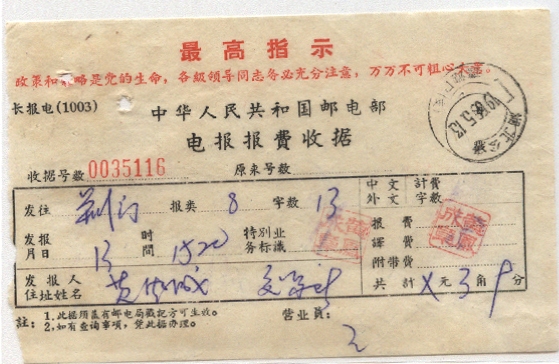 最高指示
政策和策略是党的生命，各级领导同志务必充分注意，万万不可粗心大意。
长报电(1003)
中华人民共和国邮电部
电报报费收据
收据号数 0035116 原来号数
发往 荆门 报类 8 字数 13
中文計費
外文字数
发报月日 13 时間 1520 特別业务标識
报費
譯費
附带费
发报人住址姓名
共計 X元3角9分
註：1.此据须盖有邮电局戳記方可生效。
2.如有查詢事項，凭此据办理。
营业員：